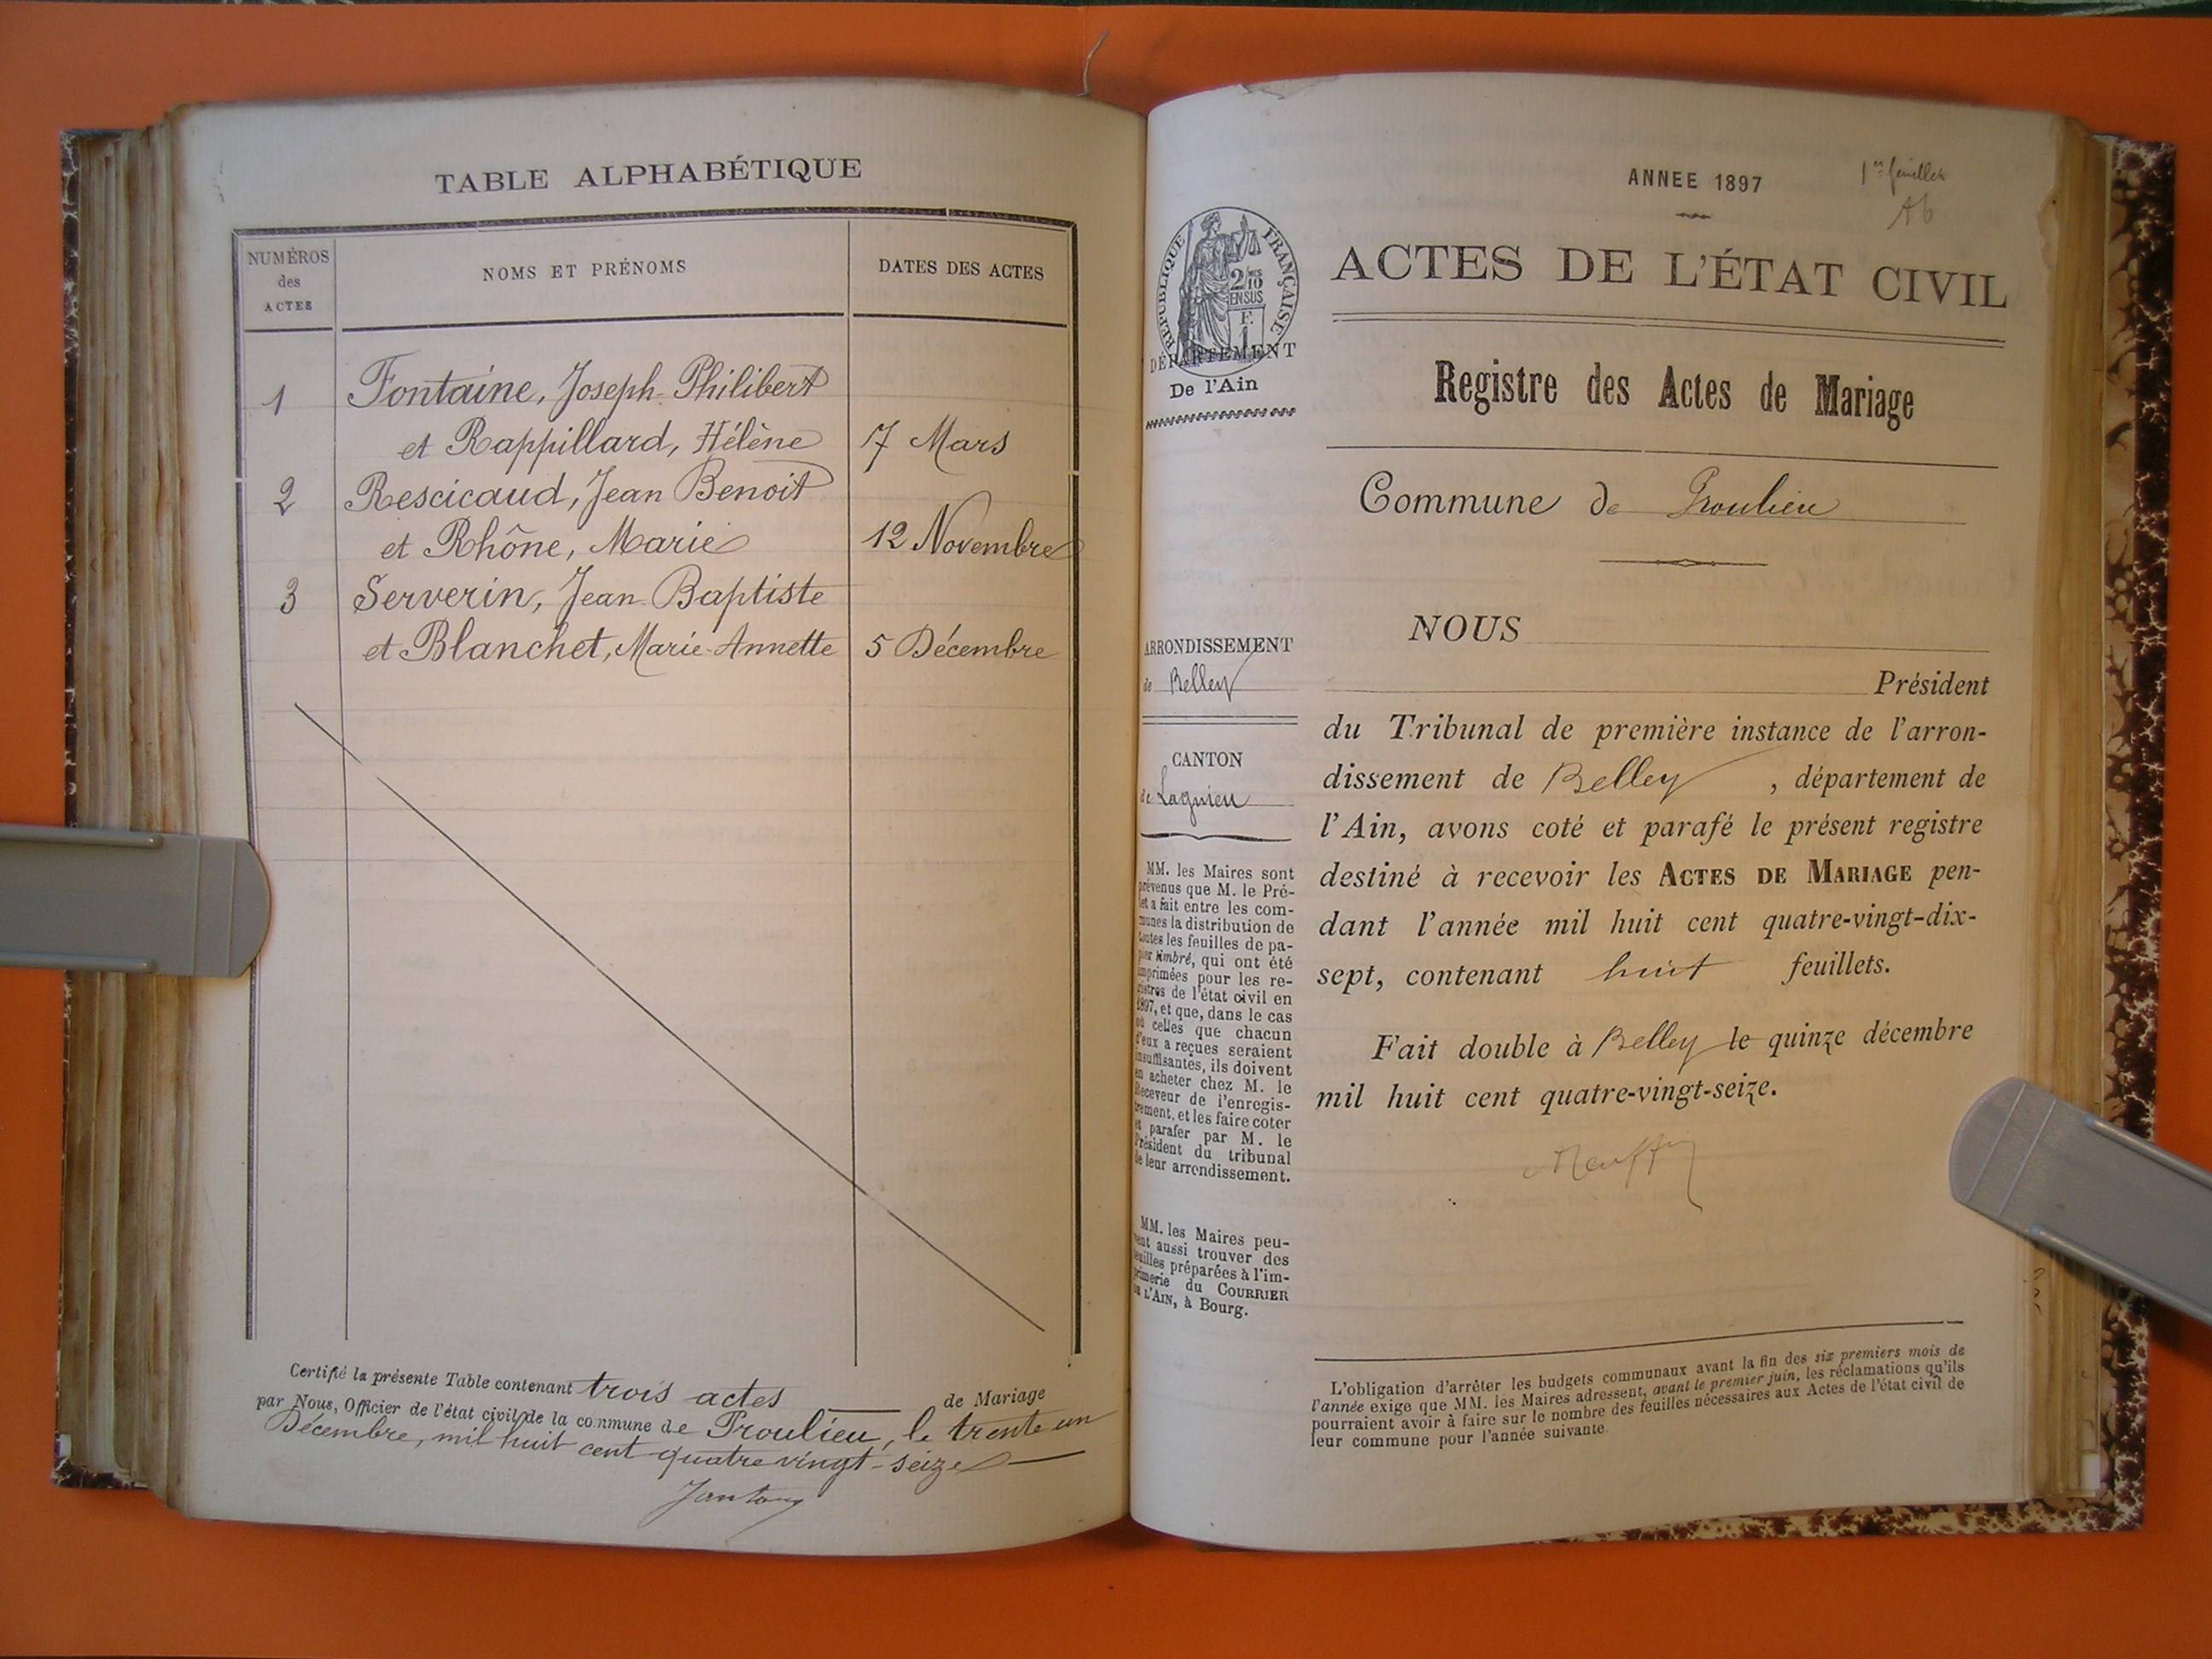 TABLE ALPHABÉTIQUE
NUMÉROS
des
ACTES
NOMS ET PRÉNOMS
DATES DES ACTES
1 Fontaine, Joseph-Philibert
et Rappillard, Hélène 17 Mars
2 Rescicaud, Jean Benoit
et Rhône, Marie 12 Novembre
3 Serverin, Jean-Baptiste
et Blanchet, Marie-Annette 5 Décembre
Certifié la présente Table contenant trois actes de Mariage
par Nous, Officier de l'état civil de la commune de Proulieu, le trente un
Décembre, mil huit cent quatre vingt-seize
ANNEE 1897
1er feuillet
ACTES DE L'ÉTAT CIVIL
RÉPUBLIQUE FRANÇAISE
2/10
EN SUS
F.
1
DÉPARTEMENT
De l'Ain
Registre des Actes de Mariage
Commune de Proulieu
ARRONDISSEMENT
de Belley
CANTON
de Lagnieu
MM. les Maires sont
prévenus que M. le Pré-
fet a fait entre les com-
munes la distribution de
toutes les feuilles de pa-
pier timbré, qui ont été
imprimées pour les re-
gistres de l'état civil en
1897, et que, dans le cas
où celles que chacun
d'eux a reçues seraient
insuffisantes, ils doivent
en acheter chez M. le
Receveur de l'enregis-
trement, et les faire coter
et parafer par M. le
Président du tribunal
de leur arrondissement.
MM. les Maires peu-
vent aussi trouver des
feuilles préparées à l'im-
primerie du COURRIER
DE L'AIN, à Bourg.
NOUS
Président
du Tribunal de première instance de l'arron-
dissement de Belley , département de
l'Ain, avons coté et parafé le présent registre
destiné à recevoir les ACTES DE MARIAGE pen-
dant l'année mil huit cent quatre-vingt-dix-
sept, contenant huit feuillets.
Fait double à Belley le quinze décembre
mil huit cent quatre-vingt-seize.
L'obligation d'arrêter les budgets communaux avant la fin des six premiers mois de
l'année exige que MM. les Maires adressent, avant le premier juin, les réclamations qu'ils
pourraient avoir à faire sur le nombre des feuilles nécessaires aux Actes de l'état civil de
leur commune pour l'année suivante.